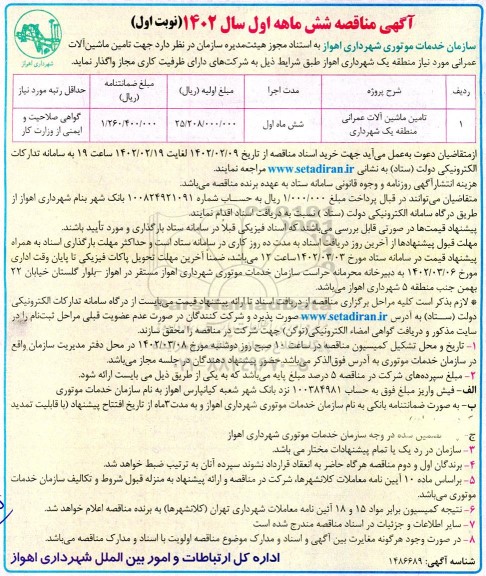 آگهی مناقصه شش ماهه اول سال ۱۴۰۲ (نوبت اول)
شهرداری اهواز
سازمان خدمات موتوری شهرداری اهواز به استناد مجوز هیئت‌مدیره سازمان در نظر دارد جهت تامین ماشین‌آلات
عمرانی مورد نیاز منطقه یک شهرداری اهواز طبق شرایط ذیل به شرکت‌های دارای ظرفیت کاری مجاز واگذار نماید.
ردیف شرح پروژه مدت اجرا مبلغ اولیه (ریال) مبلغ ضمانتنامه (ریال) حداقل رتبه مورد نیاز
۱ تامین ماشین آلات عمرانی منطقه یک شهرداری شش ماه اول ۲۵/۲۰۸/۰۰۰/۰۰۰ ۱/۲۶۰/۴۰۰/۰۰۰ گواهی صلاحیت و ایمنی از وزارت کار
ازمتقاضیان دعوت به‌عمل می‌آید جهت خرید اسناد مناقصه از تاریخ ۱۴۰۲/۰۲/۰۹ لغایت ۱۴۰۲/۰۲/۱۹ ساعت ۱۹ به سامانه تدارکات
الکترونیکی دولت (ستاد) به نشانی www.setadiran.ir مراجعه نمایند.
هزینه انتشار آگهی روزنامه و وجوه قانونی سامانه ستاد به عهده برنده مناقصه می‌باشد.
متقاضیان می‌توانند در قبال پرداخت مبلغ ۱/۰۰۰/۰۰۰ ریال به حساب شماره ۱۰۰۸۲۴۹۲۱۰۹۱ بانک شهر بنام شهرداری اهواز از
طریق درگاه سامانه الکترونیکی دولت (ستاد) نسبت به دریافت اسناد اقدام نمایند.
پیشنهاد قیمت‌ها در صورتی قابل بررسی می‌باشند که اسناد فیزیکی قبلا در سامانه ستاد بارگذاری و مورد تأیید باشند.
مهلت قبول پیشنهادها از آخرین روز دریافت اسناد به مدت ده روز کاری در سامانه ستاد است و حداکثر مهلت بارگذاری اسناد به همراه
پیشنهاد قیمت در سامانه ستاد مورخ ۱۴۰۲/۰۳/۰۳ساعت ۱۲ می‌باشد، ضمناً آخرین مهلت تحویل پاکات فیزیکی تا پایان وقت اداری
مورخ ۱۴۰۲/۰۳/۰۶ به دبیرخانه محرمانه حراست سازمان خدمات موتوری شهرداری اهواز مستقر در اهواز -بلوار گلستان خیابان ۲۲
بهمن جنب منطقه ۵ شهرداری اهواز می‌باشد.
* لازم بذکر است کلیه مراحل برگزاری مناقصه از دریافت اسناد تا ارائه پیشنهاد قیمت می‌بایست از درگاه سامانه تدارکات الکترونیکی
دولت (ستاد) به آدرس www.setadiran.ir صورت پذیرد و شرکت کنندگان در صورت عدم عضویت قبلی مراحل ثبت‌نام را در
سایت مذکور و دریافت گواهی امضاء الکترونیکی(توکن) جهت شرکت در مناقصه را محقق سازند.
۱- تاریخ و محل تشکیل کمیسیون مناقصه در ساعت ۱۰ صبح روز دوشنبه مورخ ۱۴۰۲/۰۳/۰۸ در محل دفتر مدیریت سازمان واقع
در سازمان خدمات موتوری به آدرس فوق‌الذکر می‌باشد حضور پیشنهاد دهندگان در جلسه مجاز می‌باشد.
۲- مبلغ سپرده‌های شرکت در مناقصه ۵ درصد مبلغ پایه می‌باشد که به یکی از طریق ذیل می بایست ارائه شود.
الف- فیش واریز مبلغ فوق به حساب ۱۰۰۳۸۴۹۸۱ نزد بانک شهر شعبه کیانپارس اهواز به نام سازمان خدمات موتوری
ب- به صورت ضمانتنامه بانکی به نام سازمان خدمات موتوری شهرداری اهواز و به مدت۳ماه از تاریخ افتتاح پیشنهاد (با قابلیت تمدید
ج- تضمین شده در وجه سازمان خدمات موتوری شهرداری اهواز
۳- سازمان در رد یک یا تمام پیشنهادات مختار می باشد.
۴- برندگان اول و دوم مناقصه هرگاه حاضر به انعقاد قرارداد نشوند سپرده آنان به ترتیب ضبط خواهد شد.
۵- براساس ماده ۱۰ آیین نامه معاملات کلانشهرها، شرکت در مناقصه و ارائه پیشنهاد به منزله قبول شروط و تکالیف سازمان خدمات
موتوری می‌باشد.
۶- نتیجه کمیسیون برابر مواد ۱۵ و ۱۸ آئین نامه معاملات شهرداری تهران (کلانشهرها) به برنده مناقصه اعلام خواهد شد.
۷- سایر اطلاعات و جزئیات در اسناد مناقصه مندرج شده است
۸- در صورت وجود هرگونه مغایرت بین آگهی و اسناد و مدارک موضوع مناقصه اولویت با اسناد و مدارک مناقصه می‌باشد.
شناسه آگهی: ۱۴۸۶۶۸۹
اداره کل ارتباطات و امور بین الملل شهرداری اهواز